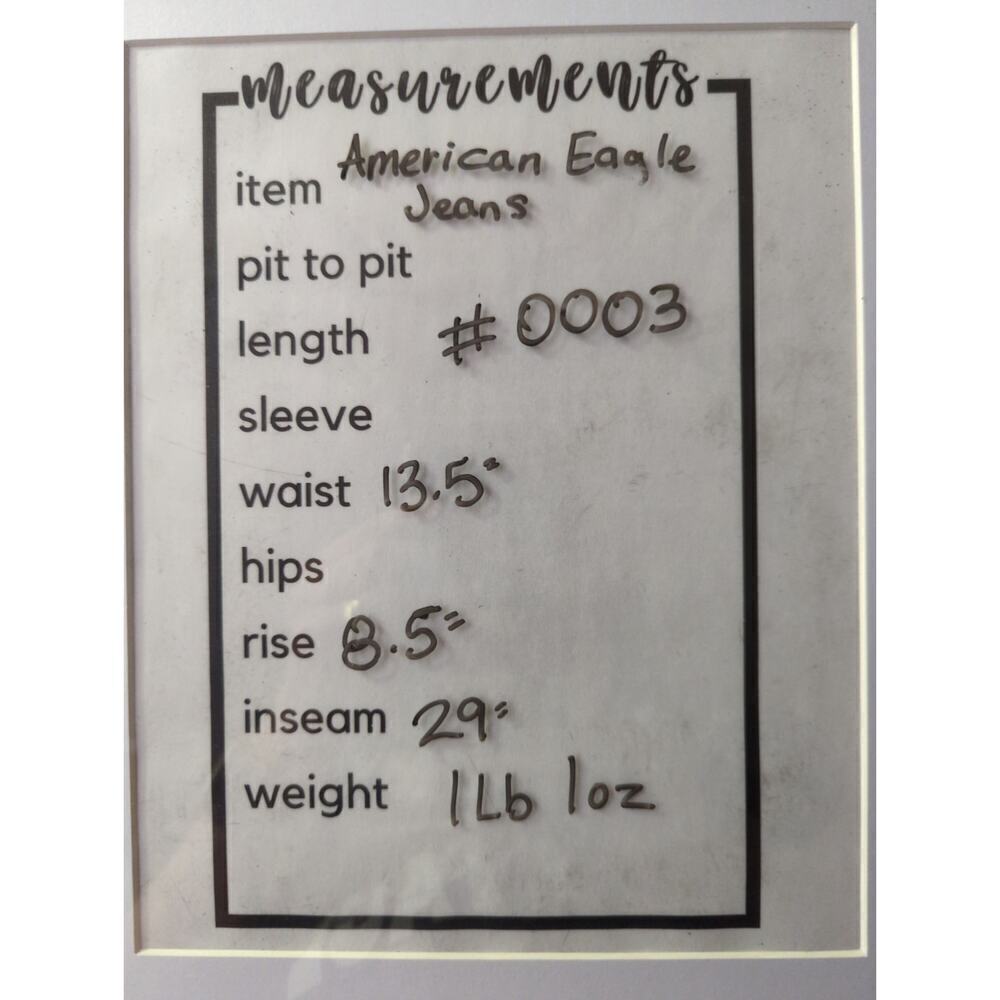 measurements
item American Eagle
Jeans
pit to pit
length # 0003
sleeve
waist 13.5"
hips
rise 8.5"
inseam 29"
weight 1 Lb 1oz